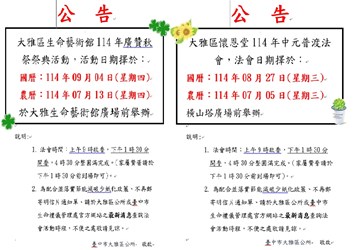 公 告
大雅區生命藝術館 114 年廣贊秋
祭祭典活動，活動日期擇於：
國曆：114 年 09 月 04 日(星期四)
農曆：114 年 07 月 13 日(星期四)
於大雅生命藝術館廣場前舉辦
說明：
1. 法會時間：上午 8 時起讚，下午 1 時 30 分
開普，4 時 30 分整圓滿完成。(家屬贊普請於
下午 1 時 30 分前到場即可)。
2. 為配合並落實節能減碳少紙化政策，不再郵
寄明信片通知單，請於大雅區公所或臺中市
生命禮儀管理處官方網站之最新消息查詢法
會活動時程，不便之處敬請見諒。
臺中市大雅區公所 敬啟
公 告
大雅區懷恩堂 114 年中元普渡法
會，法會日期擇於：
國曆：114 年 08 月 27 日(星期三)
農曆：114 年 07 月 05 日(星期三)
橫山塔廣場前舉辦
說明：
1. 法會時間：上午 9 時起讚，下午 1 時 30 分
開普，4 時 30 分整圓滿完成。(家屬贊普請於
下午 1 時 30 分前到場即可)。
2. 為配合並落實節能減碳少紙化政策，不再郵
寄明信片通知單，請於大雅區公所或臺中市
生命禮儀管理處官方網站之最新消息查詢法
會活動時程，不便之處敬請見諒。
臺中市大雅區公所 敬啟